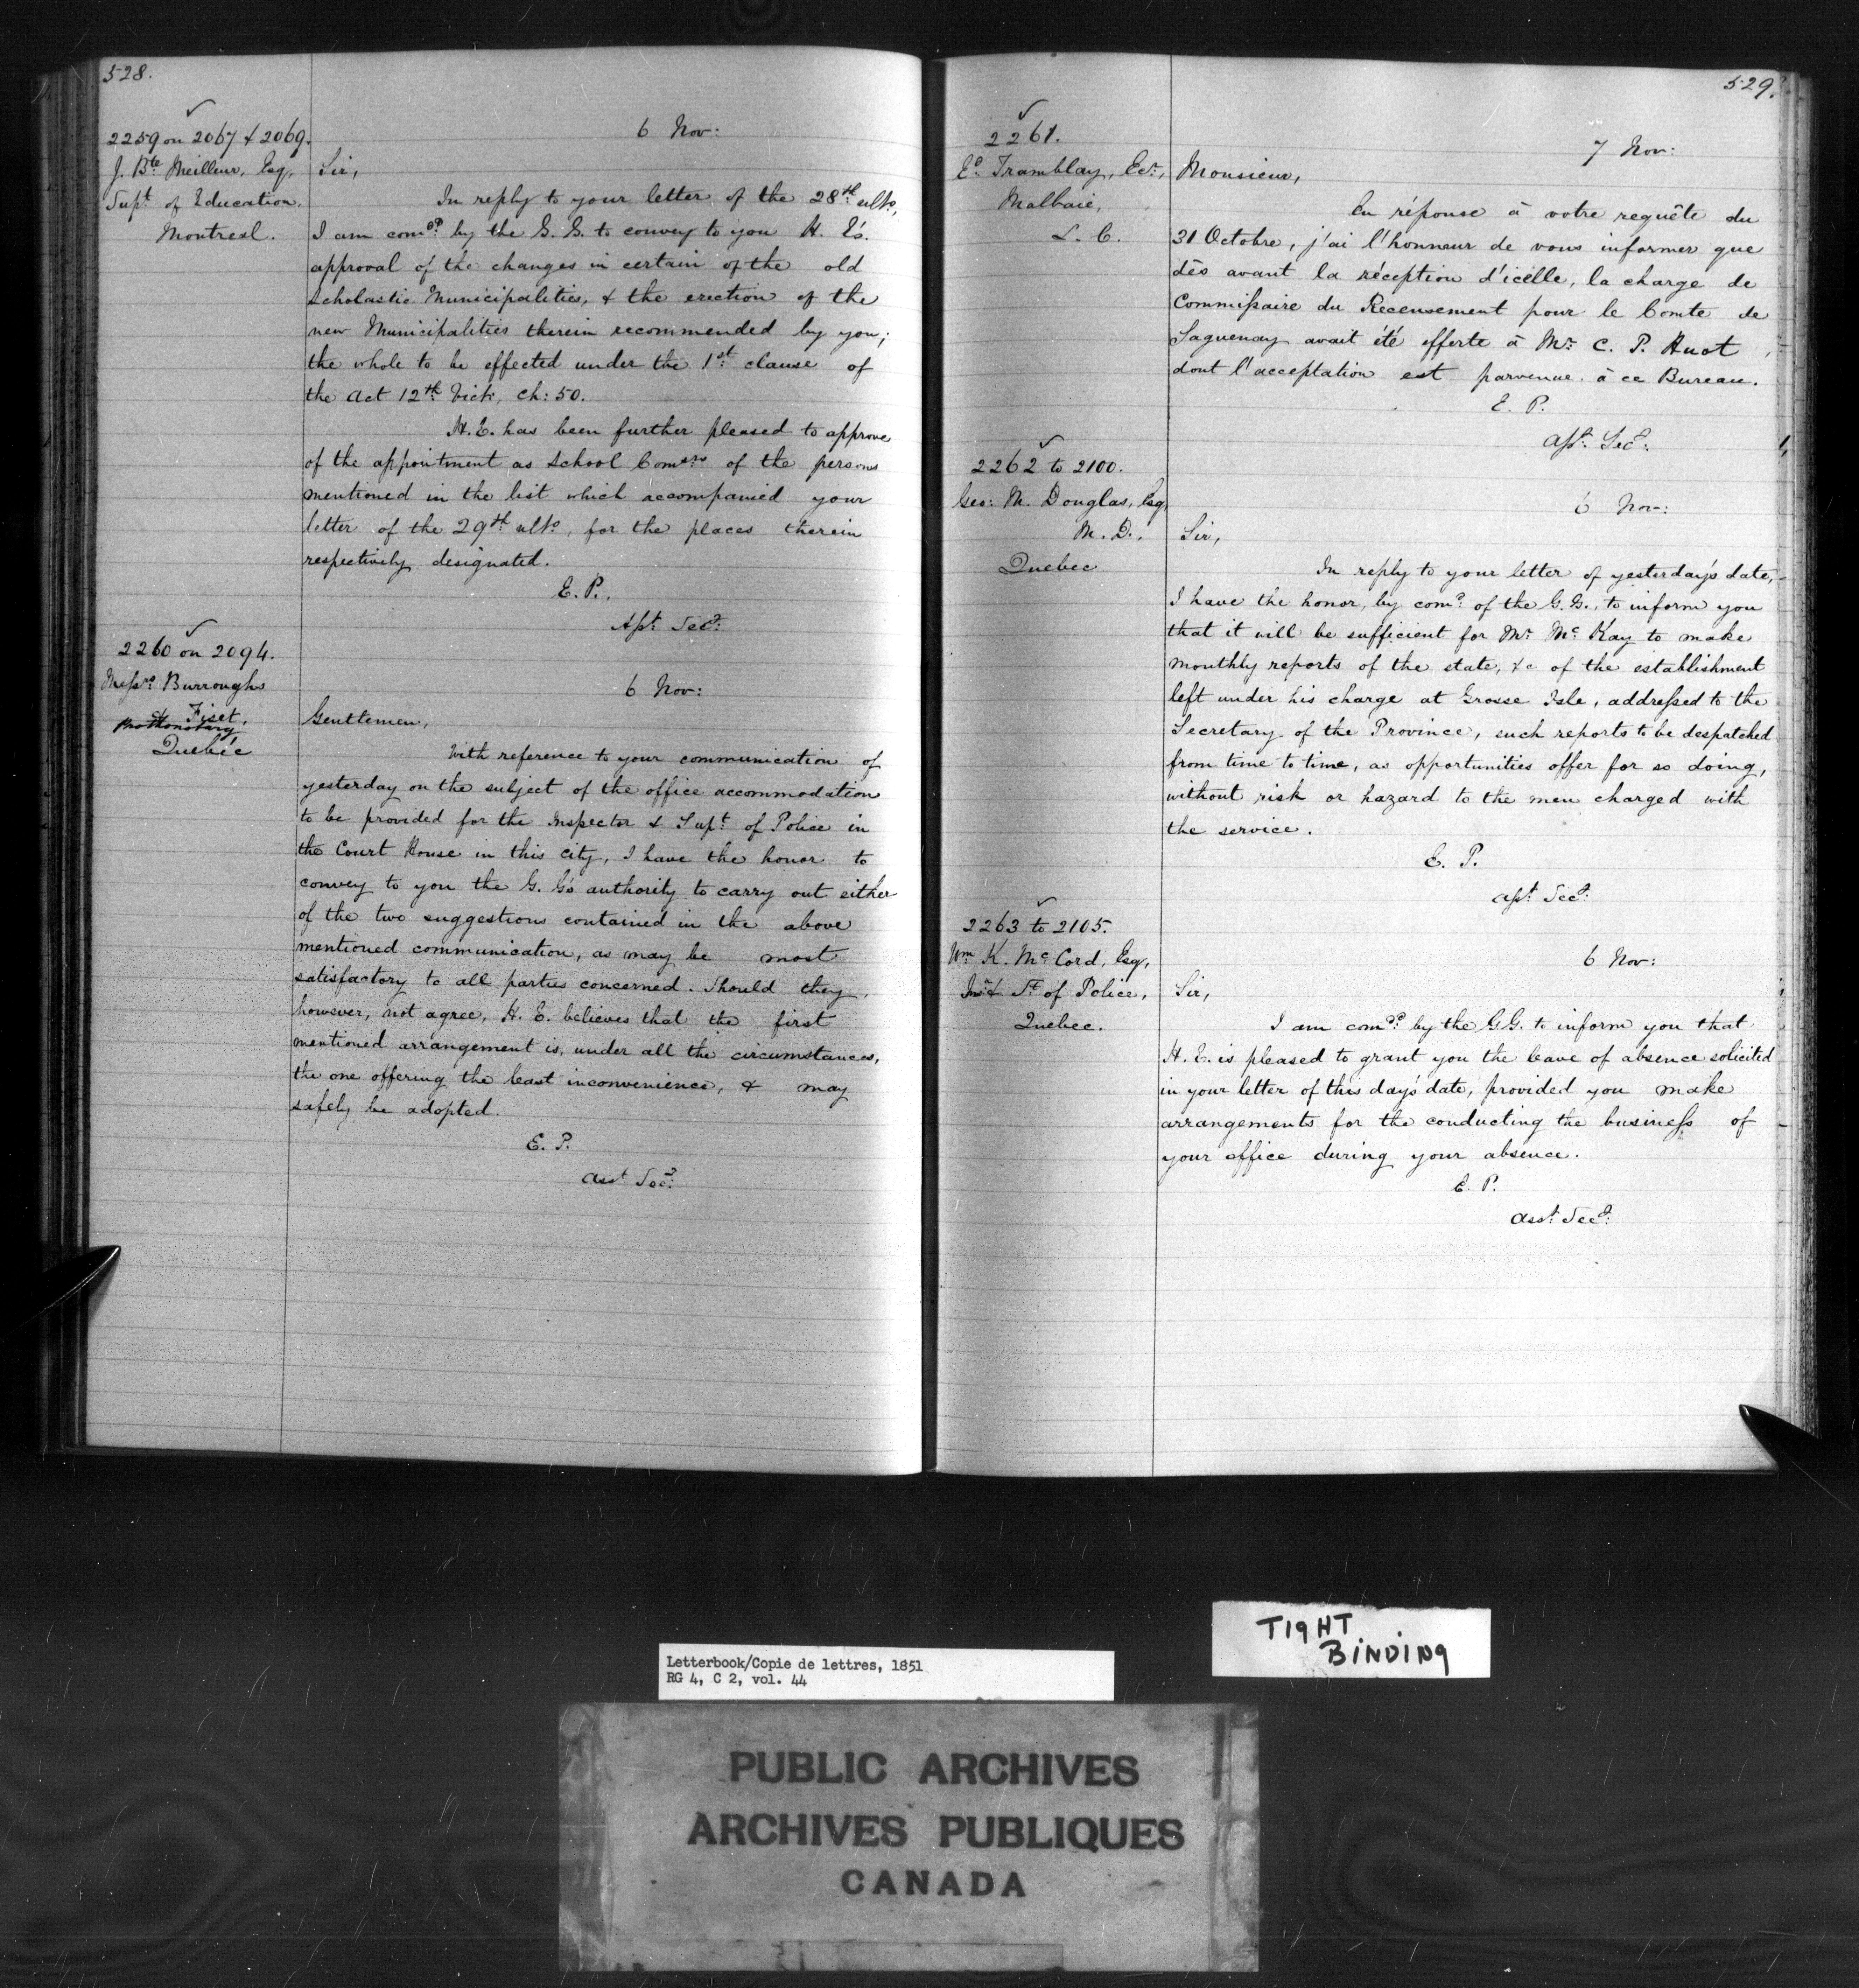 528.
2259 on 2067 & 2069.
J. Bte Meilleur, Esq,
Supt of Education.
Montreal.
6 Nov:
Sir,
In reply to your letter of the 28th ulto,
I am comdd by the G. G. to convey to you H. E's.
approval of the changes in certain of the old
Scholastic Municipalities, & the erection of the
new Municipalities therein recommended by you;
the whole to be effected under the 1st clause of
the Act 12th Vict. Ch: 50.
H. E. has been further pleased to approve
of the appointment as School Comsrs of the persons
mentioned in the list which accompanied your
letter of the 29th ulto, for the places therein
respectively designated.
E. P.
Asst Secy:
2260 on 2094.
Messrs Burroughs
& Fiset,
Prothonotary
Quebec
6 Nov:
Gentlemen,
With reference to your communication of
yesterday on the subject of the office accommodation
to be provided for the Inspector & Supt of Police in
the Court House in this city, I have the honor to
convey to you the G. G's authority to carry out either
of the two suggestions contained in the above
mentioned communication, as may be most
satisfactory to all parties concerned. Should they,
however, not agree, H. E. believes that the first
mentioned arrangement is, under all the circumstances,
the one offering the least inconvenience, & may
safely be adopted.
E. P.
Asst Secy:
529.
2261.
Ed. Tremblay, Ecr,
Malbaie,
L. C.
7 Nov:
Monsieur,
En réponse à votre requête du
31 Octobre, j'ai l'honneur de vous informer que
dès avant la réception d'icelle, la charge de
Commissaire du Recensement pour le Comte de
Saguenay avait été offerte à Mr. C. P. Huot,
dont l'acceptation est parvenue à ce Bureau.
E. P.
Asst. Secy:
2262 to 2100.
Geo: M. Douglas, Esq,
M. D.,
Quebec
6 Nov:
Sir,
In reply to your letter of yesterday's date,
I have the honor, by comd of the G. G., to inform you
that it will be sufficient for Mr McKay to make
monthly reports of the state, &c of the establishment
left under his charge at Grosse Isle, addressed to the
Secretary of the Province, such reports to be despatched
from time to time, as opportunities offer for so doing,
without risk or hazard to the men charged with
the service.
E. P.
Asst Secy:
2263 to 2105.
Wm K. McCord, Esq,
Insr & St of Police,
Quebec.
6 Nov:
Sir,
I am comdd by the G.G. to inform you that
H. E. is pleased to grant you the leave of absence solicited
in your letter of this day's date, provided you make
arrangements for the conducting the business of
your office during your absence.
E. P.
Asst. Secy:
TIGHT
BINDING
Letterbook/Copie de lettres, 1851
RG 4, C 2, vol. 44
PUBLIC ARCHIVES
ARCHIVES PUBLIQUES
CANADA